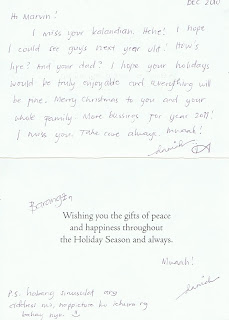 DEC 2010
Hi Marvin!
I miss your kalandian. Hehe! I hope
I could see guys next year ulit! How's
life? And your dad? I hope your holidays
would be truly enjoyable and everything will
be fine. Merry Christmas to you and your
whole family. More blessings for year 2011!
I miss you. Take care always. Mwaah!
Wishing you the gifts of peace
and happiness throughout
the Holiday Season and always.
Mwaah!
P.S. habang sinusulat ang
address mo, napicture ko itsura ng
bahay nyo.